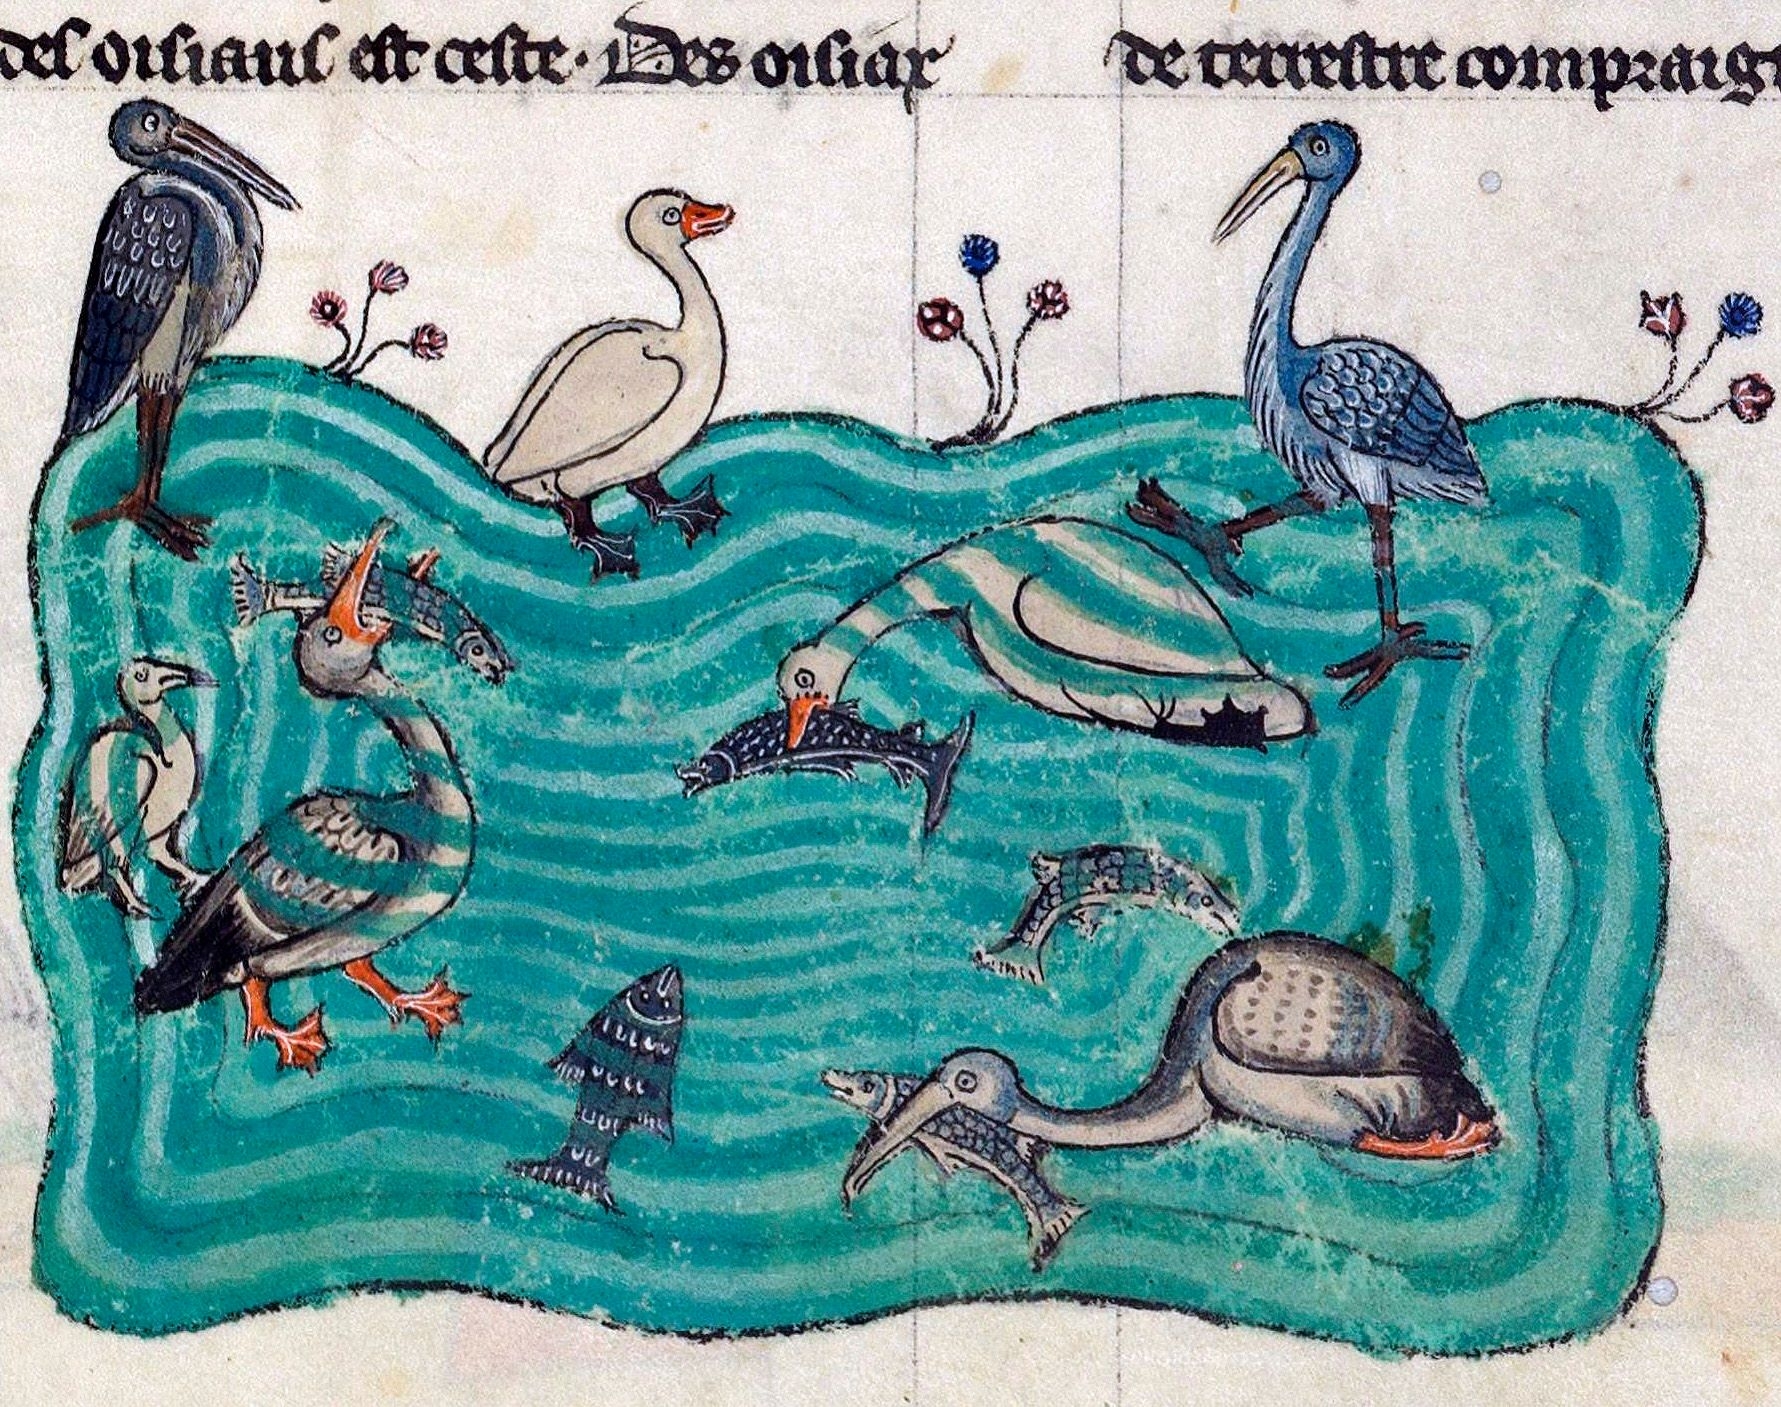 des oisiaus est ceste. Des oisiax
de terrestre compraigt